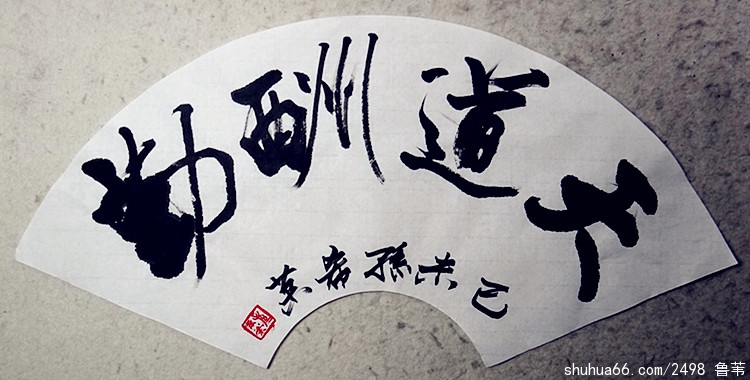 天道酬勤
己未孫希英
shuhua66.com/2498 鲁苇